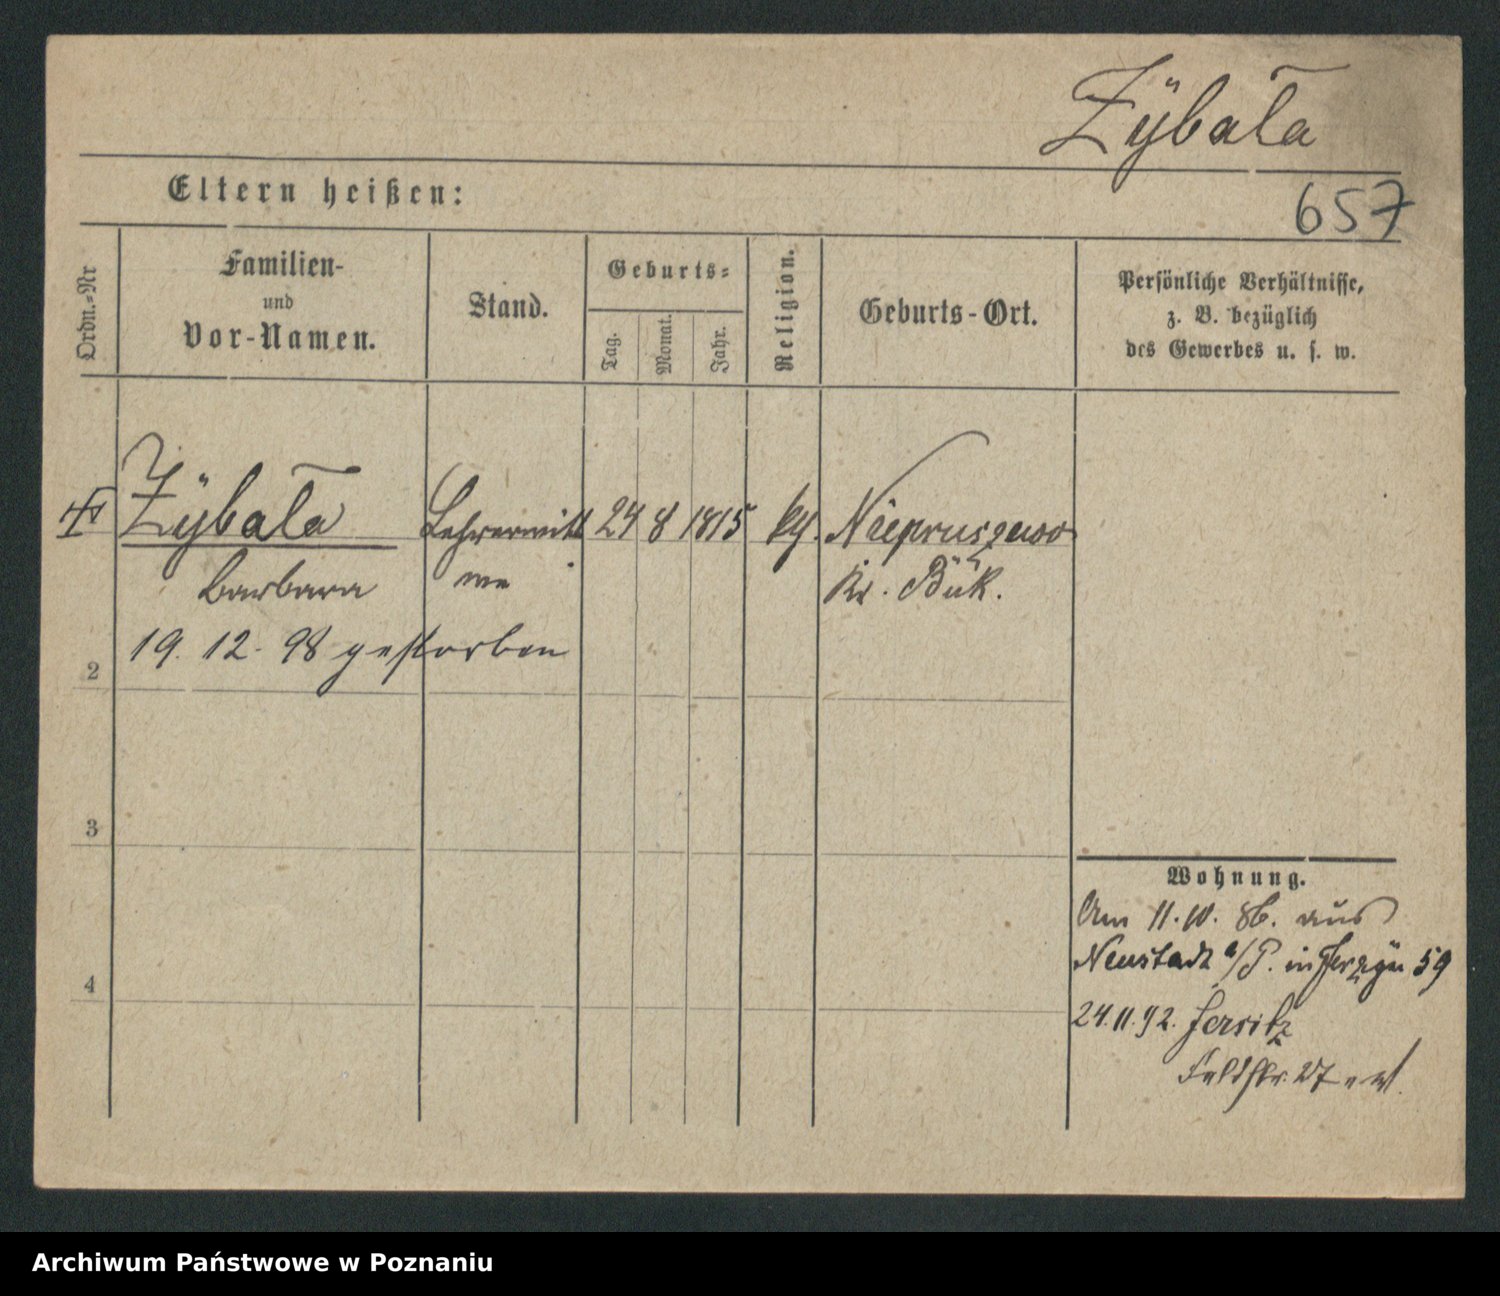 Zÿbała
Eltern heißen:
657
Ordn.=Nr
Familien-
und
Vor-Namen.
Stand.
Geburts=
Tag.
Monat.
Jahr.
Religion.
Geburts-Ort.
Persönliche Verhältnisse,
z. B. bezüglich
des Gewerbes u. s. w.
Zÿbała Lehrerwitt 24 8 1815 kth. Niepruszewo
Barbara we Kr. Buk.
19. 12. 98 gestorben
2
3
4
Wohnung.
Am 11. 10. 86. aus
Neustadt a/P. in Jerzyn 59
24.11.92. Jersitz
Feldstr. 27
Archiwum Państwowe w Poznaniu